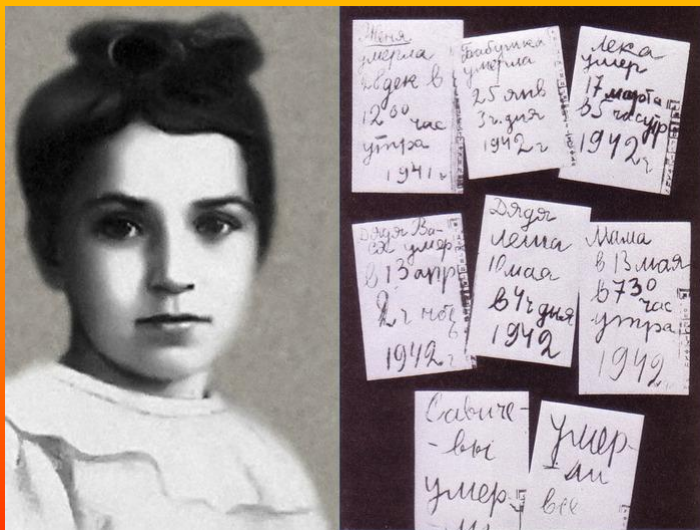 Женя
умерла
28 дек в
12 00 час
утра
1941 г
Бабушка
умерла
25 янв
3 ч. дня
1942 г
Лека
умер
17 марта
в 5 час утр
1942 г
Дядя Ва-
ся умер
в 13 апр
2 ч
1942 г
Дядя
Леша
10 мая
в 4 ч дня
1942
Мама
в 13 мая
в 7 30
час
утра
1942
Савиче-
-вы
умер-
умер-
ли
все